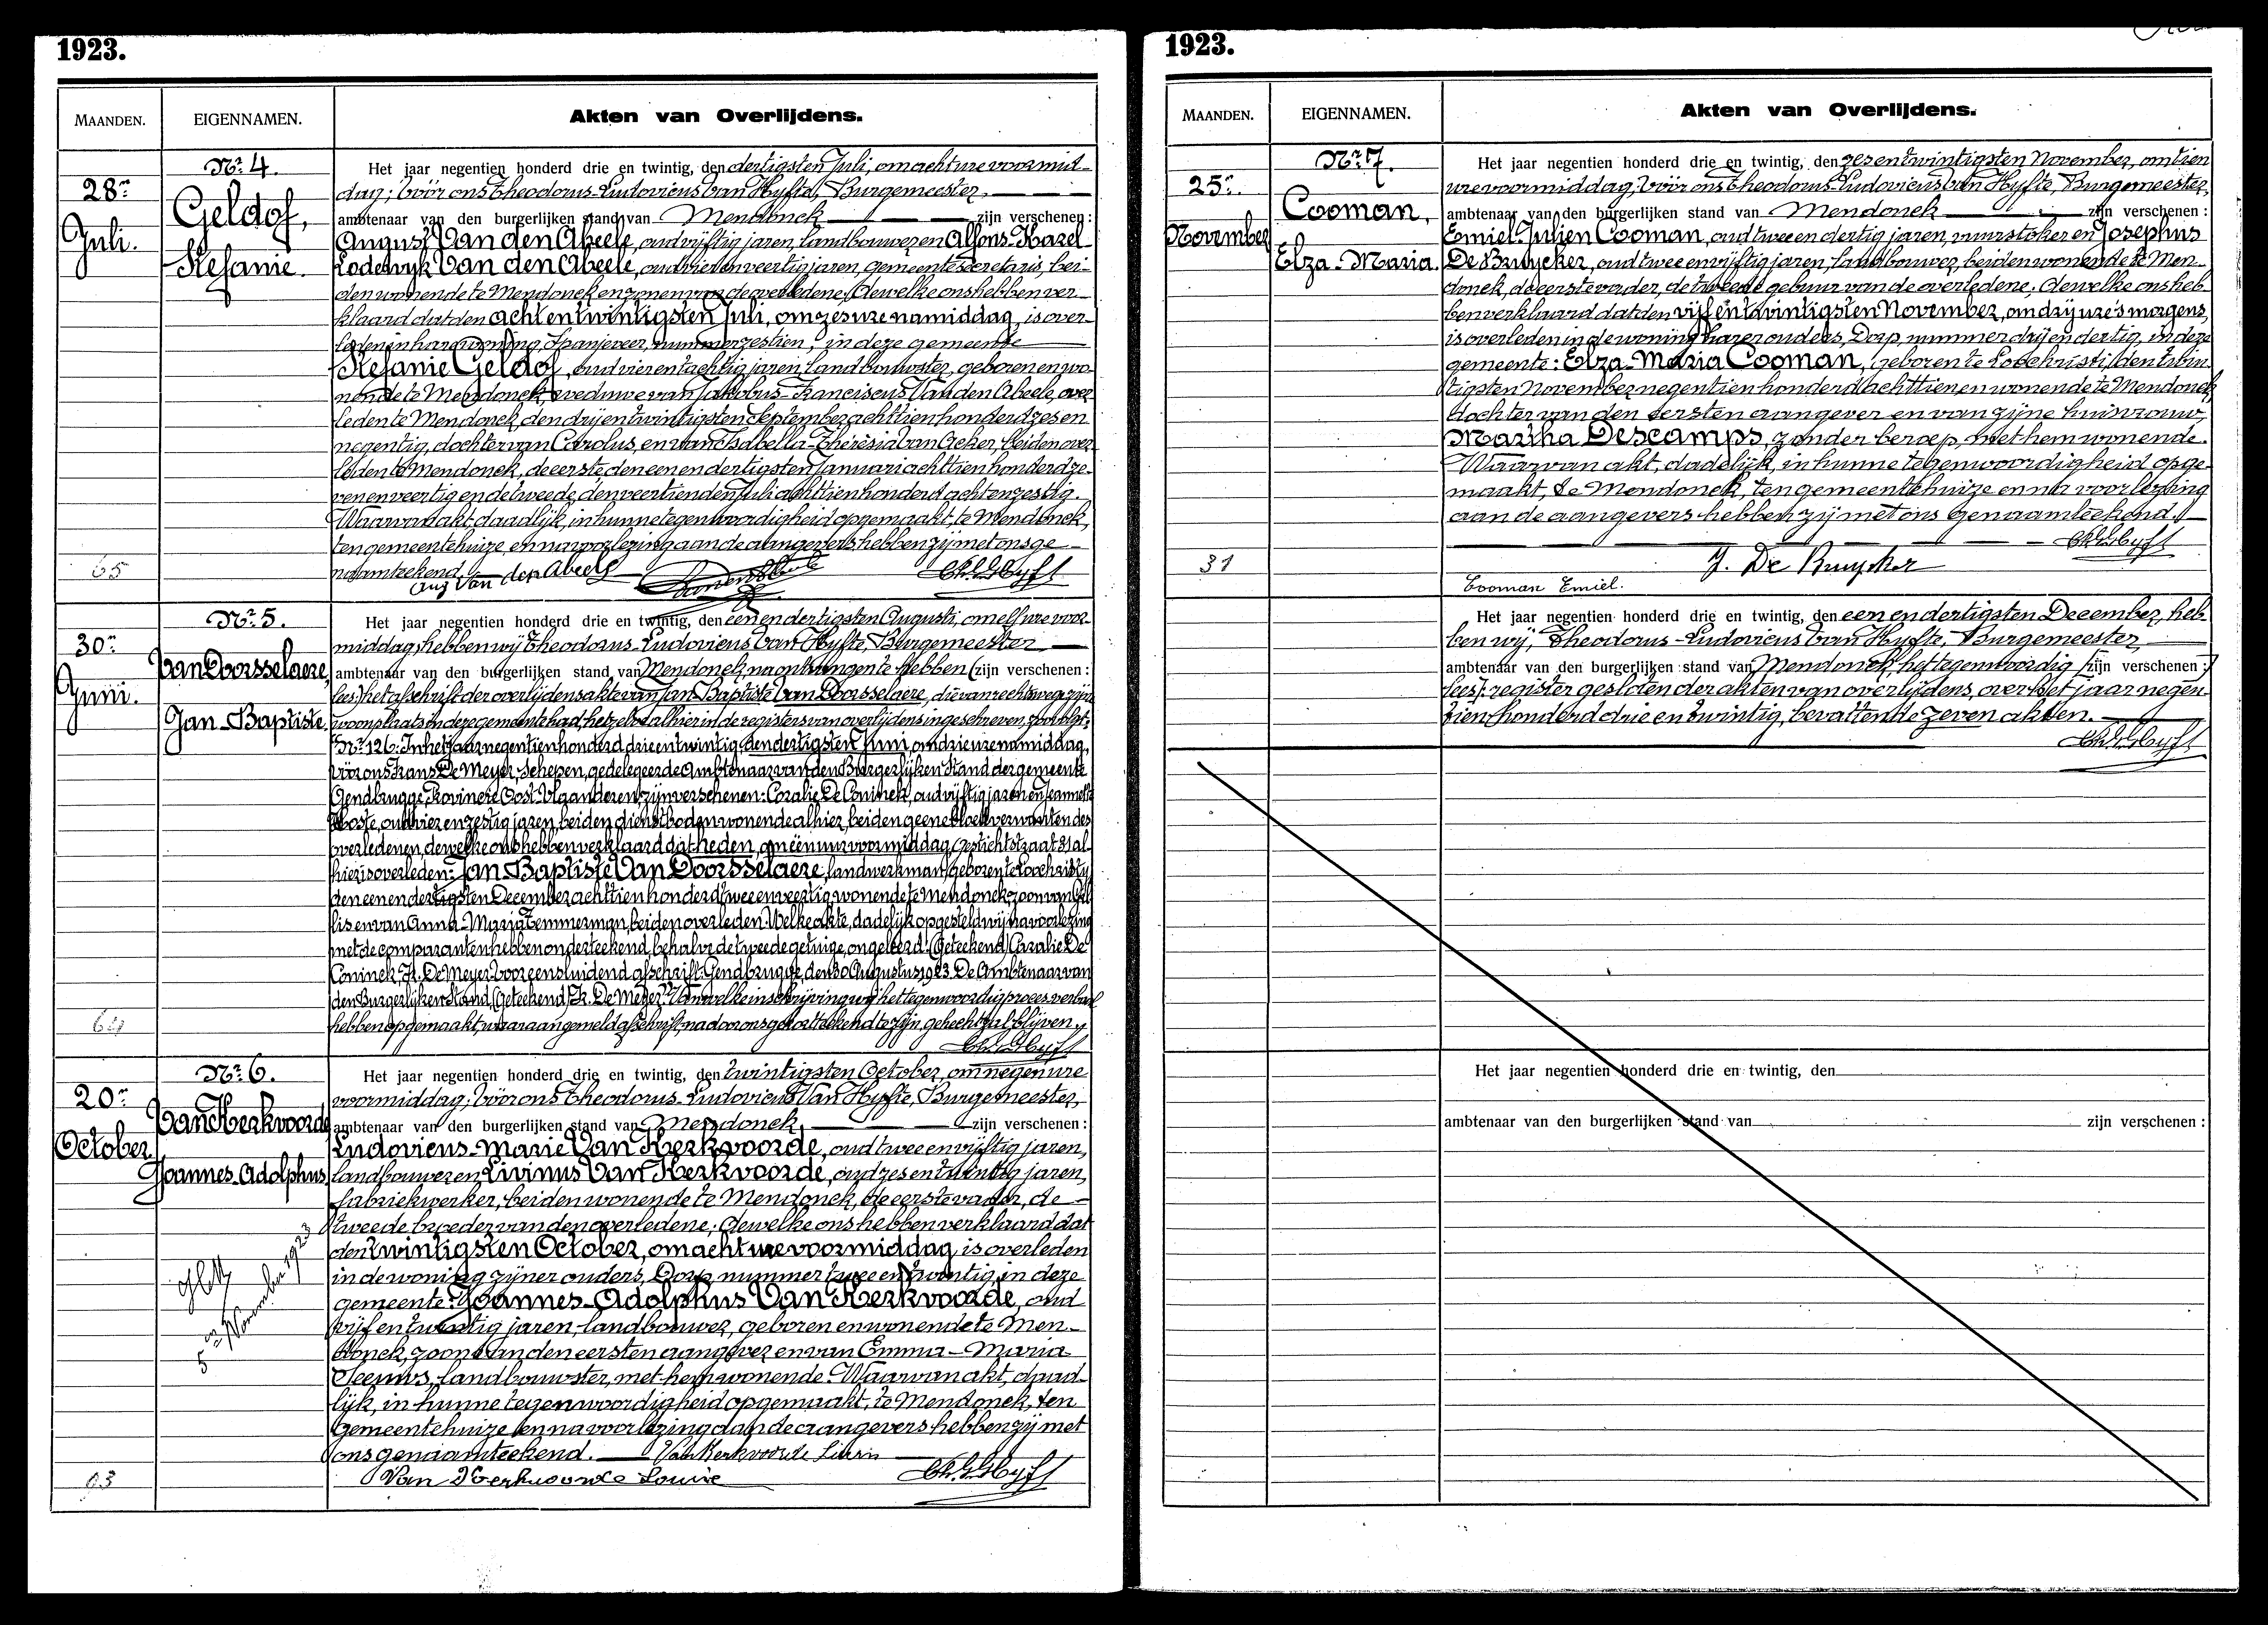 1923.
MAANDEN.
EIGENNAMEN.
Akten van Overlijdens.
28n
Juli.
Nr. 4.
Geldof,
Stefanie.
Het jaar negentien honderd drie en twintig, den dertigsten Juli, om acht ure voormid-
dag; vóór ons Theodorus-Ludovicus Van Hyfte, Burgemeester,
ambtenaar van den burgerlijken stand van Mendonck zijn verschenen:
August Van den Abeele, oud vijftig jaren, landbouwer en Alfons-Karel
Lodewyk Van den Abeele, oud vier en veertig jaren, gemeentesecretaris, bei-
den wonende te Mendonck en zonen van de overledene; dewelke ons hebben ver-
klaard dat den acht en twintigsten Juli, om zes ure namiddag, is over-
leden in hare woning, Spanjeveer, nummer zestien, in deze gemeente
Stefanie Geldof, oud vier en tachtig jaren, landbouwster, geboren en wo-
nende te Mendonck, weduwe van Jakobus-Franciscus Van den Abeele, over-
leden te Mendonck, den drij en twintigsten September achttien honderd zes en
negentig, dochter van Carolus, en van Isabella-Theresia Van Acker, beiden over-
leden te Mendonck, de eerste den een en dertigsten Januari achttien honderd ze-
ven en veertig en de tweede den veertienden Juli achttien honderd acht en zestig.
Waarvan akt, daadlijk, in hunne tegenwoordigheid opgemaakt, te Mendonck,
ten gemeentehuize en na voorlezing aan de aangevers hebben zij met ons ge-
naamteekend.
Aug Van den Abeele
65
30n
Juni.
Nr. 5.
Van Doorsselaere,
Jan Baptiste.
Het jaar negentien honderd drie en twintig, den een en dertigsten Augusti, om elf ure voor-
middag, hebben wij Theodorus-Ludovicus Van Hyfte, Burgemeester
ambtenaar van den burgerlijken stand van Mendonck, na ontvangen te hebben (zijn verschenen:
lees) het afschrift der overlijdensakte van Jan Baptiste Van Doorsselaere, die van rechtswege zijn
woonplaats in deze gemeente had, hetzelve alhier in de registers van overlijdens ingeschreven, zooals volgt:
"Nr. 126. In het jaar negentien honderd drie en twintig, den dertigsten Juni, om drie uren namiddag,
vóór ons Frans De Meyer, Schepen, gedelegeerde Ambtenaar van den Burgerlijken Stand der gemeente
Gendbrugge, Provincie Oost-Vlaanderen, zijn verschenen: Coralie De Coninck, oud vijftig jaren en Jeannette
Hoste, oud vier en zestig jaren, beiden dienstboden wonende alhier, beiden geene bloedverwanten des
overledenen, dewelke ons hebben verklaard dat heden, om één uur voormiddag, Gestichtstraat 31 al-
hier is overleden: Jan Baptiste Van Doorsselaere, landwerkman, geboren te Loochristy,
den een en dertigsten December achttien honderd twee en veertig, wonende te Mendonck, zoon van Gil-
lis en van Anna-Maria Temmerman, beiden overleden. Welke akte, dadelijk opgesteld wij na voorlezing
met de comparanten hebben onderteekend, behalve de tweede getuige, ongeleerd. (Geteekend) Coralie De
Coninck, Fr. De Meyer. Voor eensluidend afschrift: Gendbrugge, den 30 Augustus 1923. De Ambtenaar van
den Burgerlijken Stand, (Geteekend) Fr. De Meyer". Van welke inschrijving wij het tegenwoordig proces verbaal
hebben opgemaakt, waaraan gemeld afschrift, na door ons geparafeerd te zijn, gehecht zal blijven.
20n
October.
Nr. 6.
Van Kerkvoorde
Joannes-Adolphus.
5n November 1923
Het jaar negentien honderd drie en twintig, den twintigsten October, om negen ure
voormiddag; vóór ons Theodorus-Ludovicus Van Hyfte, Burgemeester,
ambtenaar van den burgerlijken stand van Mendonck zijn verschenen:
Ludovicus-Marie Van Kerkvoorde, oud twee en vijftig jaren,
landbouwer en Livinus Van Kerkvoorde, oud zes en twintig jaren,
fabriekwerker, beiden wonende te Mendonck, de eerste vader, de
tweede broeder van den overledene; dewelke ons hebben verklaard dat
den twintigsten October, om acht ure voormiddag is overleden
in de woning zijner ouders, Dorp nummer twee en twintig, in deze
gemeente: Joannes-Adolphus Van Kerkvoorde, oud
vijf en twintig jaren, landbouwer, geboren en wonende te Men-
donck, zoon van den eersten aangever en van Emma-Maria
Seeuws, landbouwster, met hem wonende. Waarvan akt, daad-
lijk, in hunne tegenwoordigheid opgemaakt, te Mendonck, ten
Gemeentehuize en na voorlezing aan de aangevers hebben zij met
ons genaamteekend. Van Kerkvoorde Livin
Van Kerkvoorde Louis
1923.
MAANDEN.
EIGENNAMEN.
Akten van Overlijdens.
25n.
November
Nr. 7.
Cooman,
Elza-Maria.
Het jaar negentien honderd drie en twintig, den zes en twintigsten November, om tien
ure voormiddag; vóór ons Theodorus-Ludovicus Van Hyfte, Burgemeester,
ambtenaar van den burgerlijken stand van Mendonck zijn verschenen:
Emiel-Julien Cooman, oud twee en dertig jaren, vuurstoker en Josephus
De Bruycker, oud twee en vijftig jaren, landbouwer, beiden wonende te Men-
donck, de eerste vader, de tweede gebuur van de overledene; dewelke ons heb-
ben verklaard dat den vijf en twintigsten November, om drij ure 's morgens,
is overleden in de woning harer ouders, Dorp, nummer drij en dertig, in deze
gemeente: Elza-Maria Cooman, geboren te Loochristi, den twin-
tigsten November negentien honderd achttien en wonende te Mendonck,
dochter van den eersten aangever en van zijne huisvrouw,
Martha Descamps, zonder beroep, met hem wonende.
Waarvan akt, dadelijk, in hunne tegenwoordigheid opge-
maakt, te Mendonck, ten gemeentehuize en na voorlezing
aan de aangevers hebben zij met ons genaamteekend.
31
J. De Bruycker
Cooman Emiel.
Het jaar negentien honderd drie en twintig, den een en dertigsten December, heb-
ben wij, Theodorus-Ludovicus Van Hyfte, Burgemeester,
ambtenaar van den burgerlijken stand van Mendonck, het tegenwoordig (zijn verschenen:
lees) register gesloten der akten van overlijdens, over het jaar negen-
tien honderd drie en twintig, bevattende zeven akten.
Het jaar negentien honderd drie en twintig, den
ambtenaar van den burgerlijken stand van zijn verschenen: